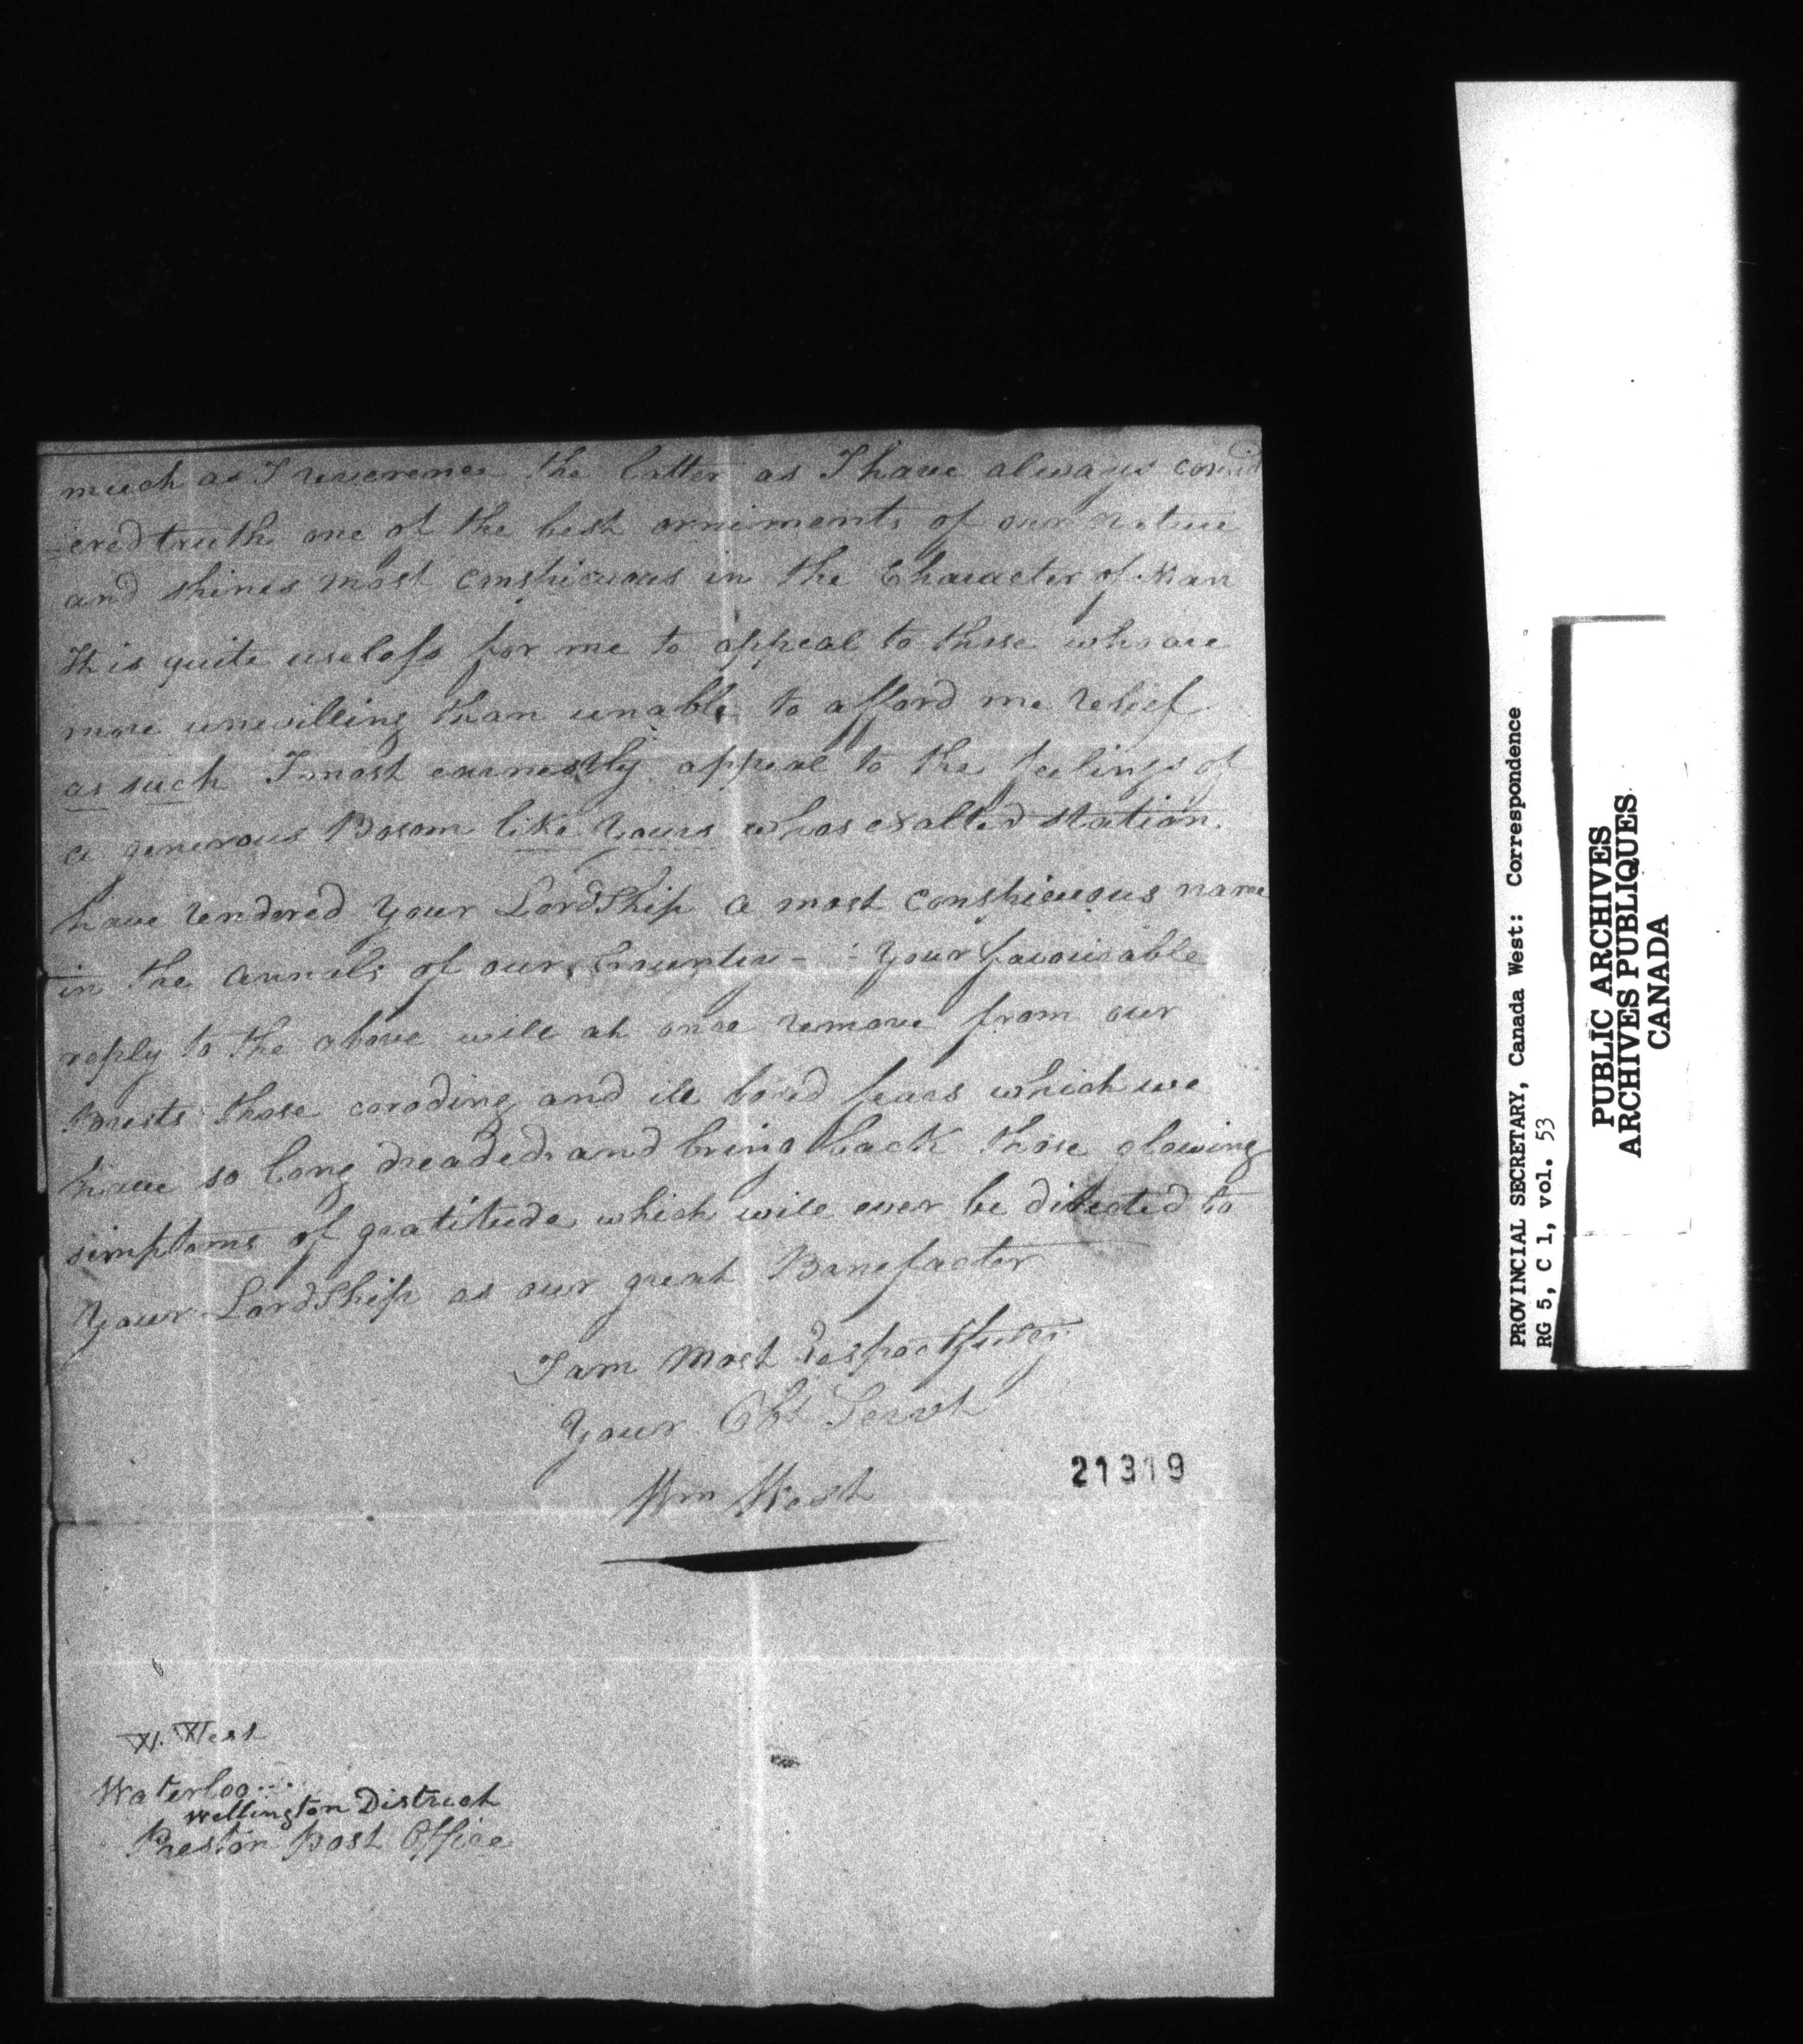 much as I reverence the latter as I have always consid
-ered truth one of the best orniments of our nature
and shines most conspicuous in the Character of Man
It is quite useless for me to appeal to those who are
more unwilling than unable to afford me relief
as such I most earnestly appeal to the feelings of
a generous Bosom like Yours whos exalted station
have rendered your LordShip a most conspicuous name
in the annels of our Country - - Your favourable
reply to the above will at once remove from our
Brests those coroding and ill bored fears which we
have so long dreaded and bring back those glowing
simptoms of gratitude which will ever be directed to
Your LordShip as our great Benefactor
I am Most Respectfully
Your Obt Servt
Wm West
21319
W. West
Waterloo
Wellington District
Preston Post Office
PROVINCIAL SECRETARY, Canada West: Correspondence
RG 5, C 1, vol. 53
PUBLIC ARCHIVES
ARCHIVES PUBLIQUES
CANADA